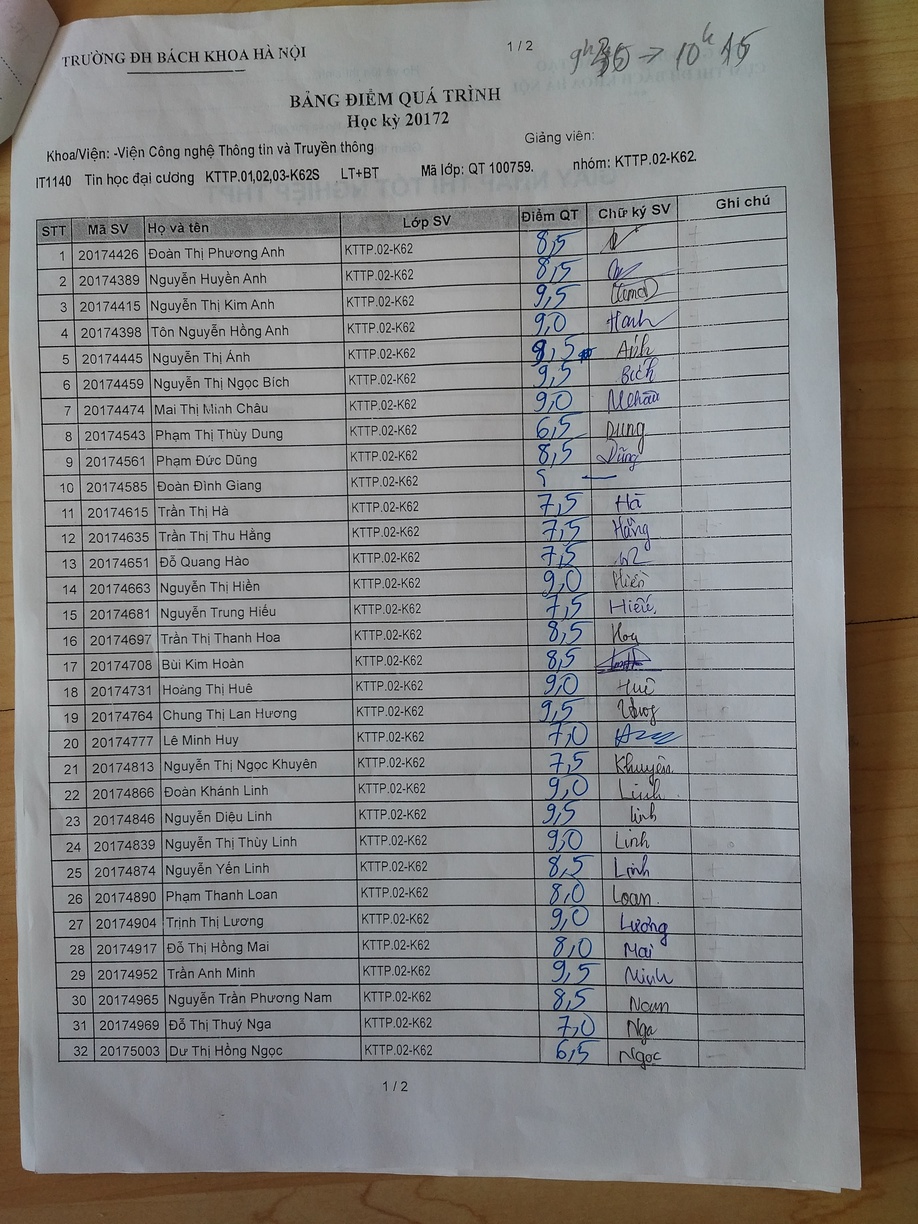 TRƯỜNG ĐH BÁCH KHOA HÀ NỘI
1 / 2
10h 15
BẢNG ĐIỂM QUÁ TRÌNH
Học kỳ 20172
Khoa/Viện: -Viện Công nghệ Thông tin và Truyền thông Giảng viên:
IT1140 Tin học đại cương KTTP.01,02,03-K62S LT+BT Mã lớp: QT 100759. nhóm: KTTP.02-K62.
STT Mã SV Họ và tên Lớp SV Điểm QT Chữ ký SV Ghi chú
1 20174426 Đoàn Thị Phương Anh KTTP.02-K62 8,5
2 20174389 Nguyễn Huyền Anh KTTP.02-K62 8,5
3 20174415 Nguyễn Thị Kim Anh KTTP.02-K62 9,5
4 20174398 Tôn Nguyễn Hồng Anh KTTP.02-K62 9,0
5 20174445 Nguyễn Thị Ánh KTTP.02-K62 Ánh
6 20174459 Nguyễn Thị Ngọc Bích KTTP.02-K62 9,5 Bích
7 20174474 Mai Thị Minh Châu KTTP.02-K62 9,0 MChâu
8 20174543 Phạm Thị Thùy Dung KTTP.02-K62 6,5 Dung
9 20174561 Phạm Đức Dũng KTTP.02-K62 8,5 Dũng
10 20174585 Đoàn Đình Giang KTTP.02-K62
11 20174615 Trần Thị Hà KTTP.02-K62 7,5 Hà
12 20174635 Trần Thị Thu Hằng KTTP.02-K62 7,5 Hằng
13 20174651 Đỗ Quang Hào KTTP.02-K62 7,5
14 20174663 Nguyễn Thị Hiền KTTP.02-K62 9,0 Hiền
15 20174681 Nguyễn Trung Hiếu KTTP.02-K62 7,5 Hiếu.
16 20174697 Trần Thị Thanh Hoa KTTP.02-K62 8,5 Hoa
17 20174708 Bùi Kim Hoàn KTTP.02-K62 8,5
18 20174731 Hoàng Thị Huê KTTP.02-K62 9,0 Huê
19 20174764 Chung Thị Lan Hương KTTP.02-K62 9,5
20 20174777 Lê Minh Huy KTTP.02-K62 7,0
21 20174813 Nguyễn Thị Ngọc Khuyên KTTP.02-K62 7,5 Khuyên.
22 20174866 Đoàn Khánh Linh KTTP.02-K62 9,0 Linh
23 20174846 Nguyễn Diệu Linh KTTP.02-K62 9,5 linh
24 20174839 Nguyễn Thị Thùy Linh KTTP.02-K62 9,0 Linh
25 20174874 Nguyễn Yến Linh KTTP.02-K62 8,5 Linh
26 20174890 Phạm Thanh Loan KTTP.02-K62 8,0 Loan.
27 20174904 Trịnh Thị Lương KTTP.02-K62 9,0 Lương
28 20174917 Đỗ Thị Hồng Mai KTTP.02-K62 8,0 Mai
29 20174952 Trần Anh Minh KTTP.02-K62 9,5 Minh
30 20174965 Nguyễn Trần Phương Nam KTTP.02-K62 8,5 Nam
31 20174969 Đỗ Thị Thuý Nga KTTP.02-K62 7,0 Nga
32 20175003 Dư Thị Hồng Ngọc KTTP.02-K62 6,5 Ngọc
1 / 2